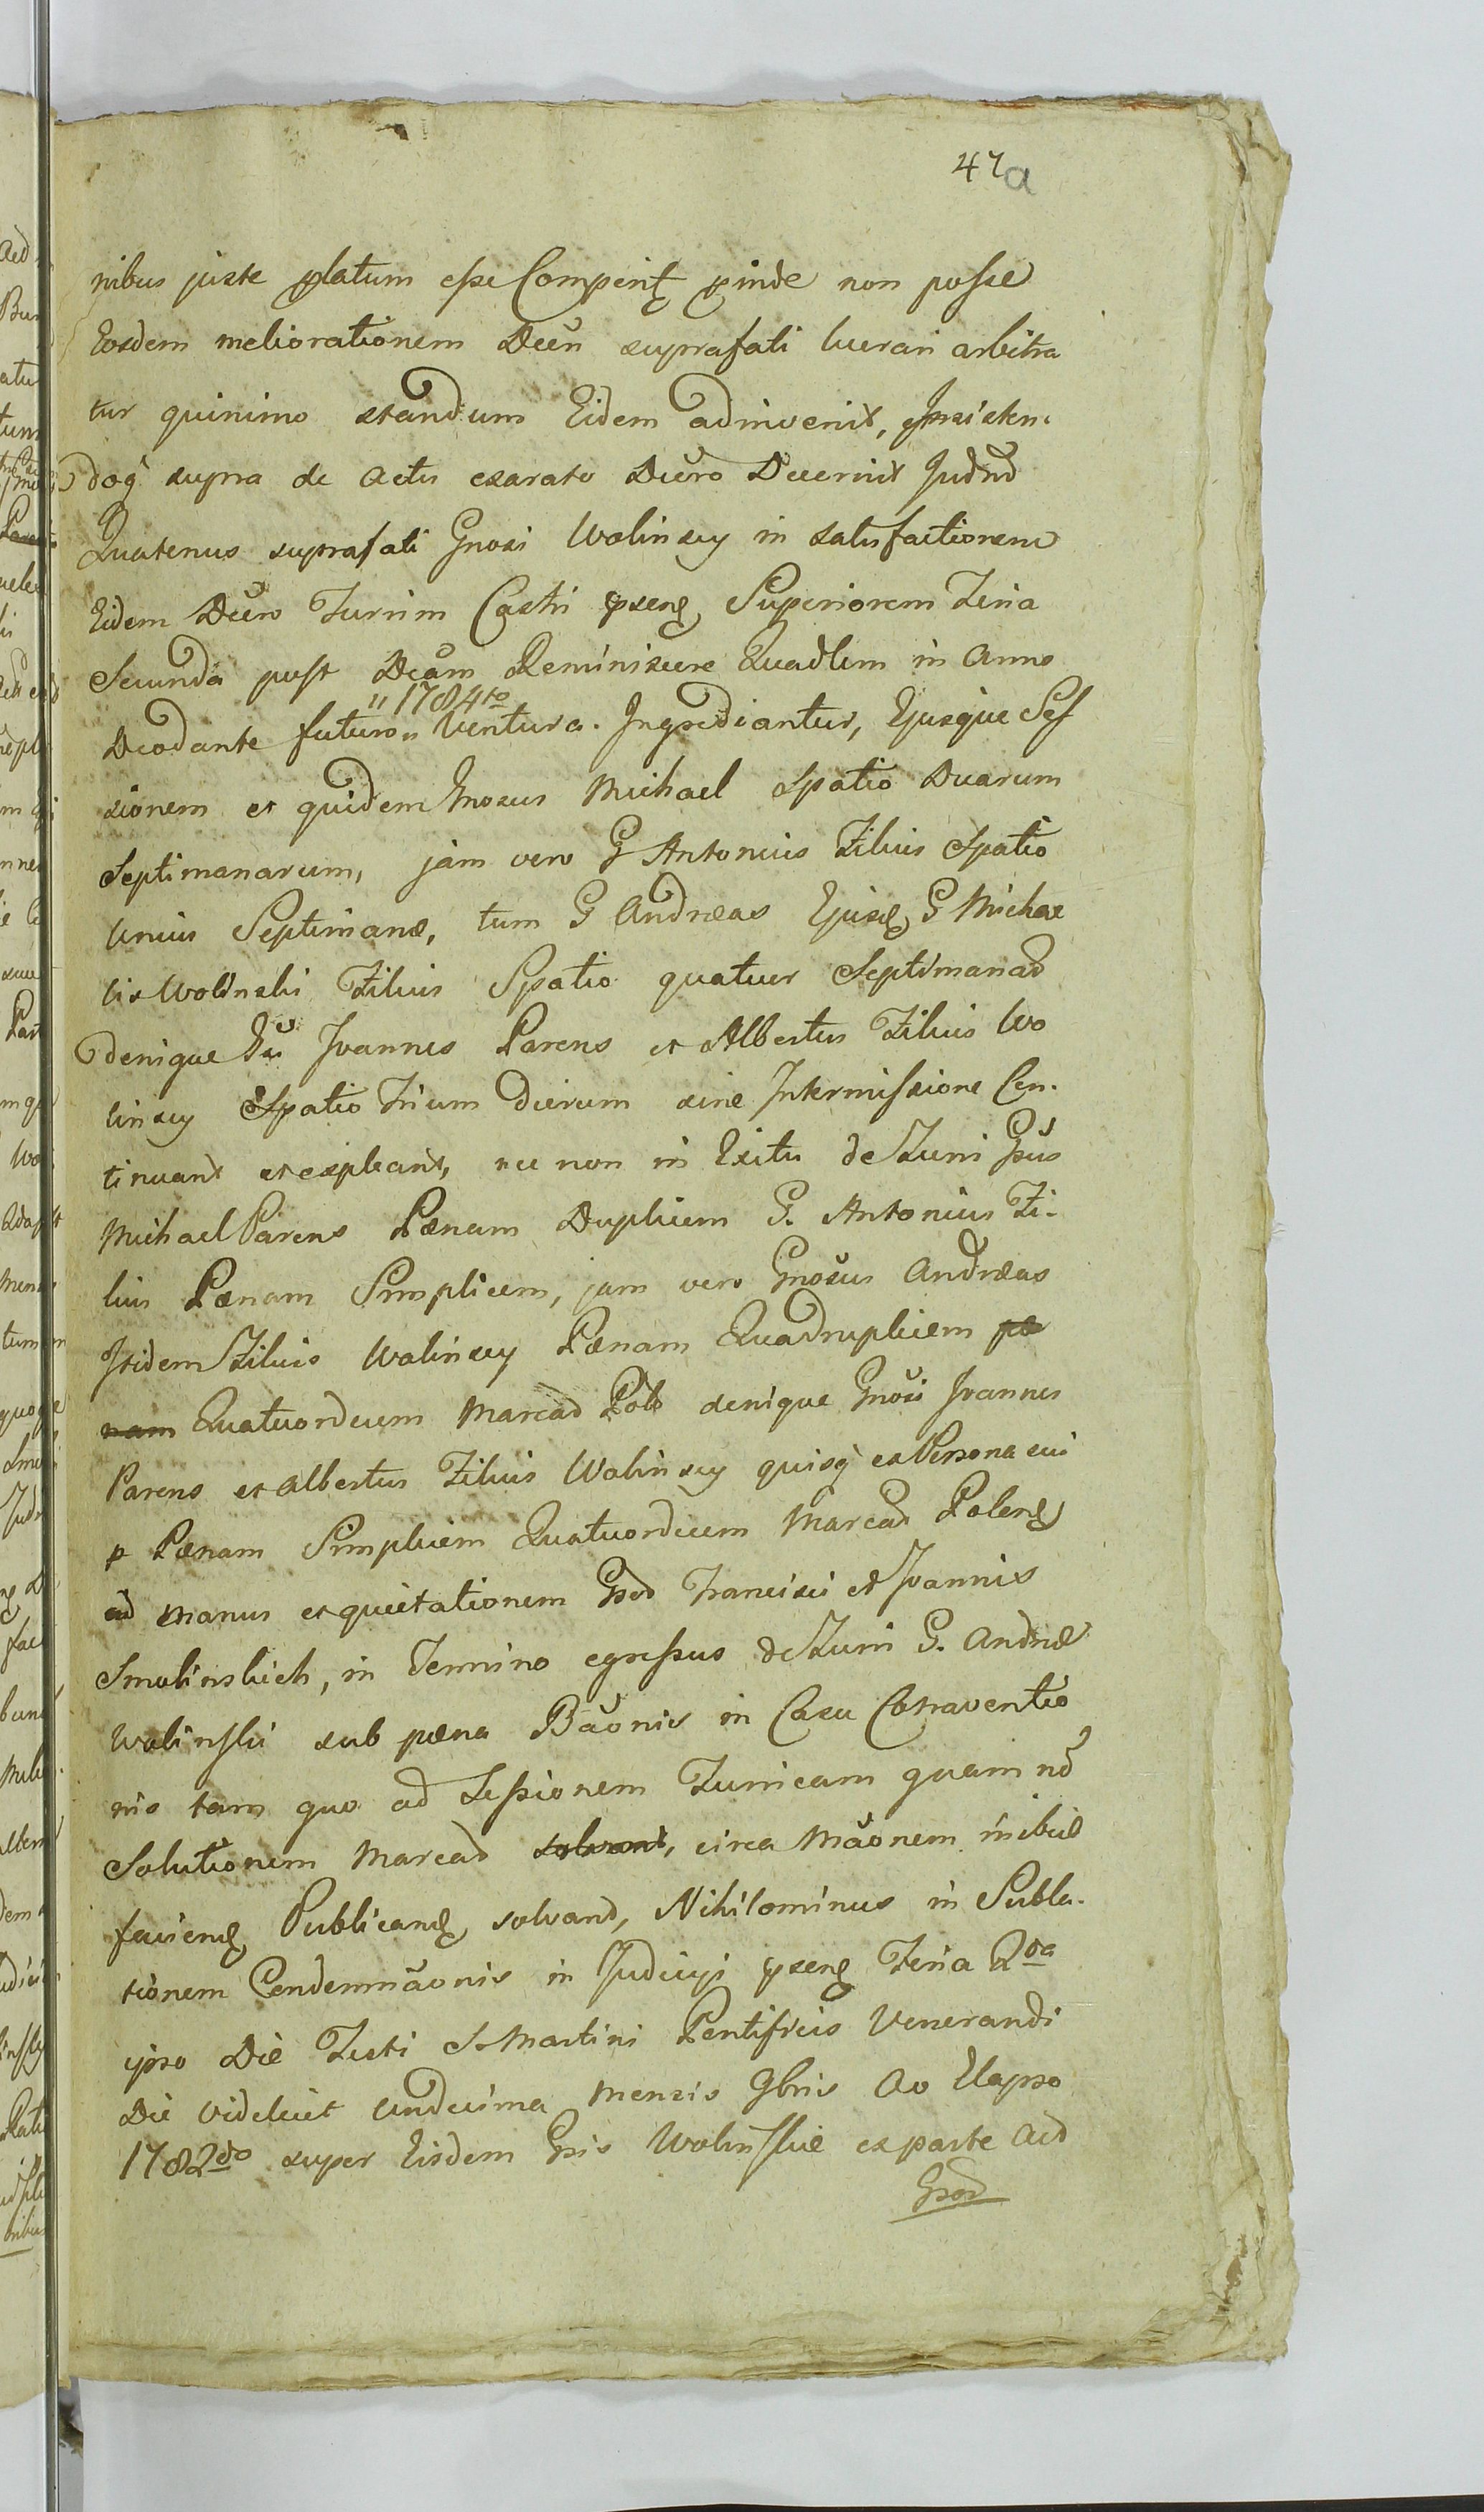 47a
nibus juste platum esse Comperit pinde non posse
Eosdem meliorationem Decti suprafati lucrari arbitra
tur quinimo standum Eidem adinvenit, Insisten-
doq supra de actu exarato Decro Decernit Judnd
Quatenus suprafati Gnosi Wolinscy in satisfactionem
Eidem Decro Turrim Castri psens Superiorem Feria
Secunda post Dcam Reminiscere Quadlem in Anno
" 1784to
Deodante futuro " Ventura. Ingrediantur, Ejusque Sef
sionem et quidem Gnosus Michael Spatio Duarum
Septimanarum, jam vero G Antonius Filius Spatio
Unius Septimanæ, tum G Andreas Ejusd G Michae
lis Wolinski Filius Spatio quatuor Septimanad
denique Gsi Joannes Parens et Albertus Filius Wo
linscy Spatio Trium Dierum sine Intermissione Con-
tinuant et expleant, nec non in Exitu de Turri Gsus
Michael Parens Pænam Duplicem G. Antonius Fi-
lius Pænam Simplicem, jam vero Gnosus Andreas
Itidem Filius Wolinscy Pænam Quadruplicem pæ
nam Quatuordecim Marcad Pols denique Gnosi Joannes
Parens et Albertus Filius Wolinscy quisq ex Persona sui
p Pænam Simplicem Quatuordecim Marcad Polens
ad manus et quietationem Gsod Francisci et Joannis
Smolinskich, in Termino egressus de Turri G. Andreæ
Wolinski sub pæna Baonis in Casu Contraventio
nis tam quo ad Sessionem Turricam quam nd
Solutionem Marcad solvant, circa Maonem inibid
faciend Publicand solvand, Nihilominus in Subla-
tionem Condemnaonis in Judicys psens Feria 2da
ipso Die Festi S. Martini Pontificis Venerandi
Die videlicet undecima Mensis 9bris Ao Elapso
1782do super Eisdem Gsis Wolinskie ex parte Acd
Gsod